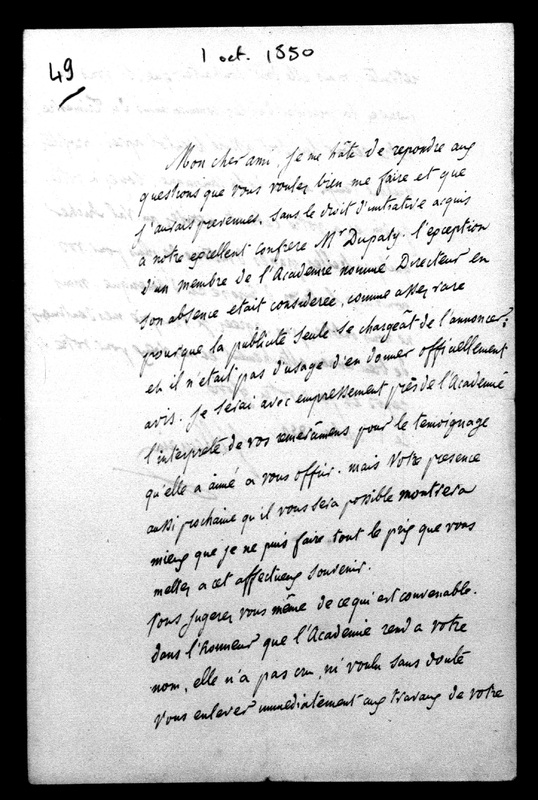 1 oct. 1850
49
Mon cher ami, je me hâte de repondre aux
questions que vous voulez bien me faire et que
j'aurais prevenues, sans le droit d'initiative acquis
a notre excellent confrere Mr Dupaty. l'exception
d'un membre de l'Academie nommé Directeur en
son absence etait considerée, comme assez rare
pourque la publicité seule se chargeât de l'annoncer;
et il n'etait pas d'usage d'en donner officiellement
avis. je serai avec empressement près de l'Academie
l'interprete de vos remerciemens pour le temoignage
qu'elle a aimé a vous offrir. mais votre presence
aussi prochaine qu'il vous sera possible montrera
mieux que je ne puis faire tout le prix que vous
mettez a cet affectueux souvenir.
Vous jugerez vous même de ce qui est convenable.
dans l'honneur que l'Academie rend a votre
nom, elle n'a pas cru, ni voulu sans doute
vous enlever immediatement aux travaux de votre